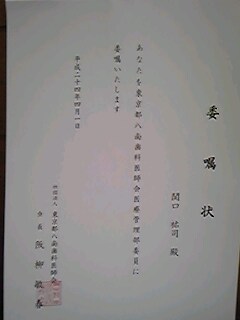 委嘱状
関口 祐司 殿
あなたを東京都八南歯科医師会医療管理部委員に
委嘱いたします
平成二十四年四月一日
社団法人 東京都八南歯科医師会
会長 阪柳 敏春